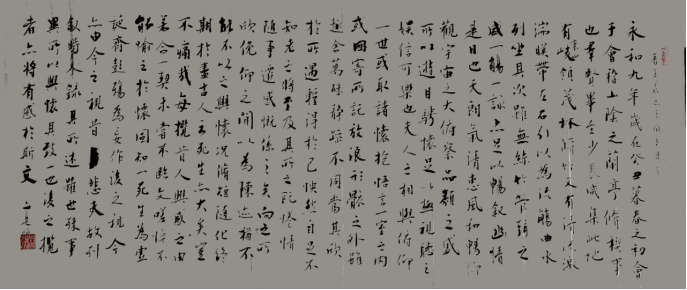 永和九年歲在癸丑暮春之初會
于會稽山陰之蘭亭脩稧事
也羣賢畢至少長咸集此地
有峻領茂林脩竹又有清流激
湍暎帶左右引以為流觴曲水
列坐其次雖無絲竹管弦之
盛一觴一詠亦足以暢敘幽情
是日也天朗氣清惠風和暢仰
觀宇宙之大俯察品類之盛
所以遊目騁懷足以極視聽之
娛信可樂也夫人之相與俯仰
一世或取諸懷抱悟言一室之內
或因寄所託放浪形骸之外雖
趣舍萬殊靜躁不同當其欣
於所遇暫得於己怏然自足不
知老之將至及其所之既惓情
隨事遷感慨係之矣向之所
欣俛仰之閒以為陳迹猶不
能不以之興懷況脩短隨化終
期於盡古人云死生亦大矣豈
不痛哉每攬昔人興感之由
若合一契未嘗不臨文嗟悼不
能喻之於懷固知一死生為虛
誕齊彭殤為妄作後之視今
亦由今之視昔悲夫故列
敘時人錄其所述雖世殊事
異所以興懷其致一也後之攬
者亦將有感於斯文